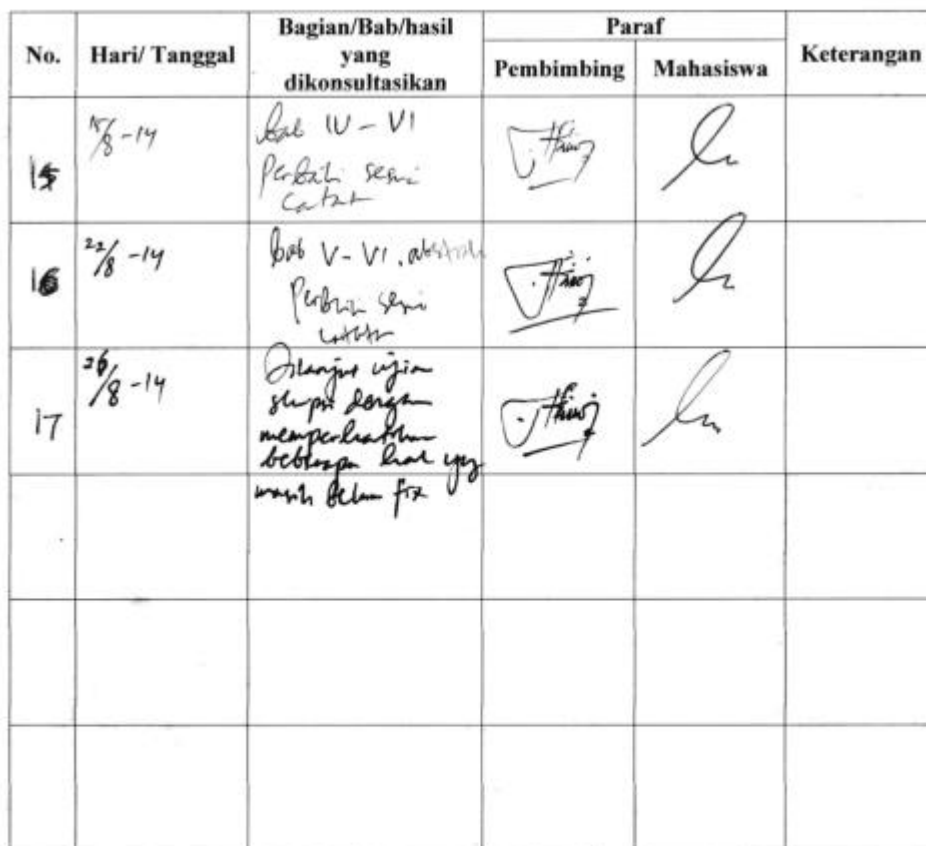 No.
Hari/ Tanggal
Bagian/Bab/hasil
yang
dikonsultasikan
Paraf
Pembimbing
Mahasiswa
Keterangan
15
15/8 -14
bab IV - VI
Perbaiki sesuai
catatan
16
22/8 -14
bab V - VI. abstrak
Perbaiki sesuai
catatan
17
26/8 -14
Dilanjut ujian
skripsi dengan
memperhatikan
beberapa hal yg
masih belum fix